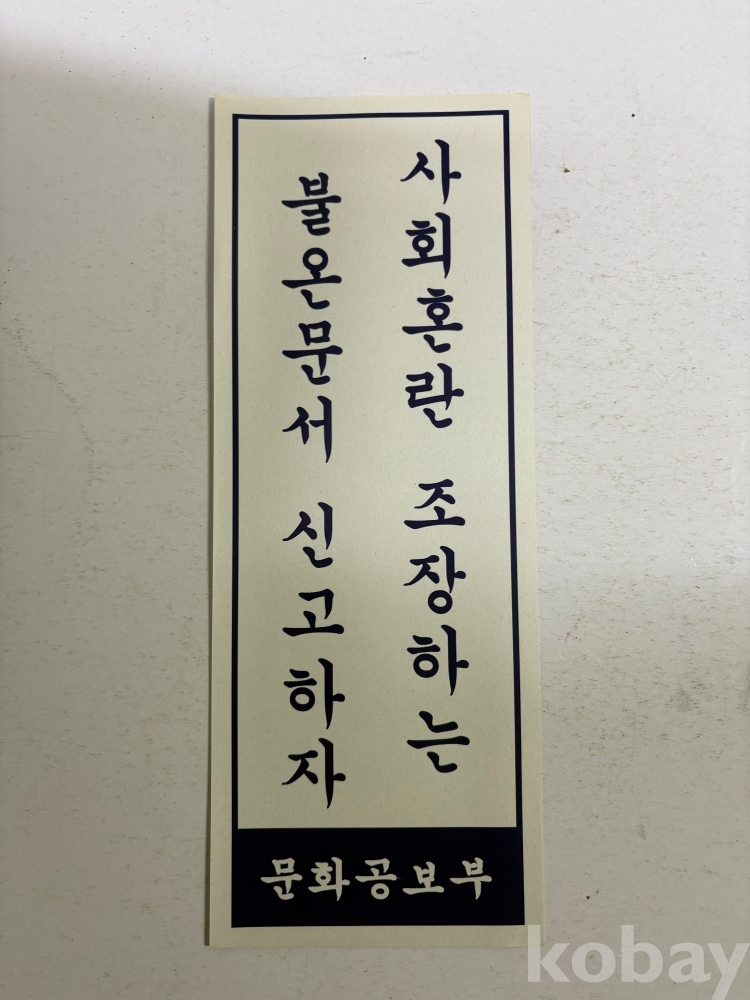 사회혼란 조장하는
불온문서 신고하자
문화공보부
kobay